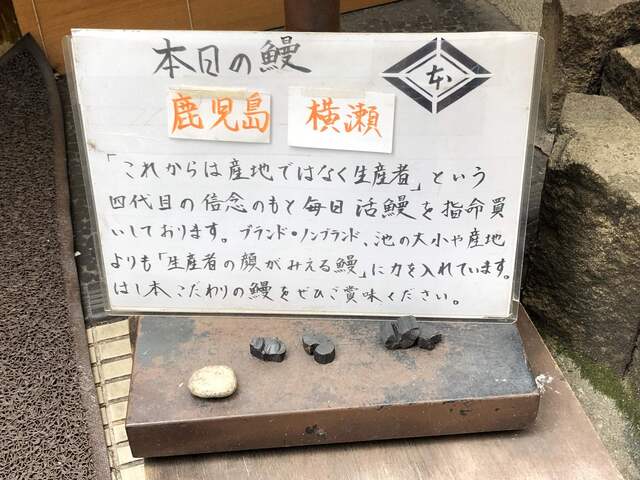 本日の鰻
本
鹿児島 横瀬
「これからは産地ではなく生産者」という
四代目の信念のもと毎日活鰻を指命買
いしております。ブランド・ノンブランド、池の大小や産地
よりも「生産者の顔がみえる鰻」に力を入れています。
はし本こだわりの鰻をぜひご賞味ください。